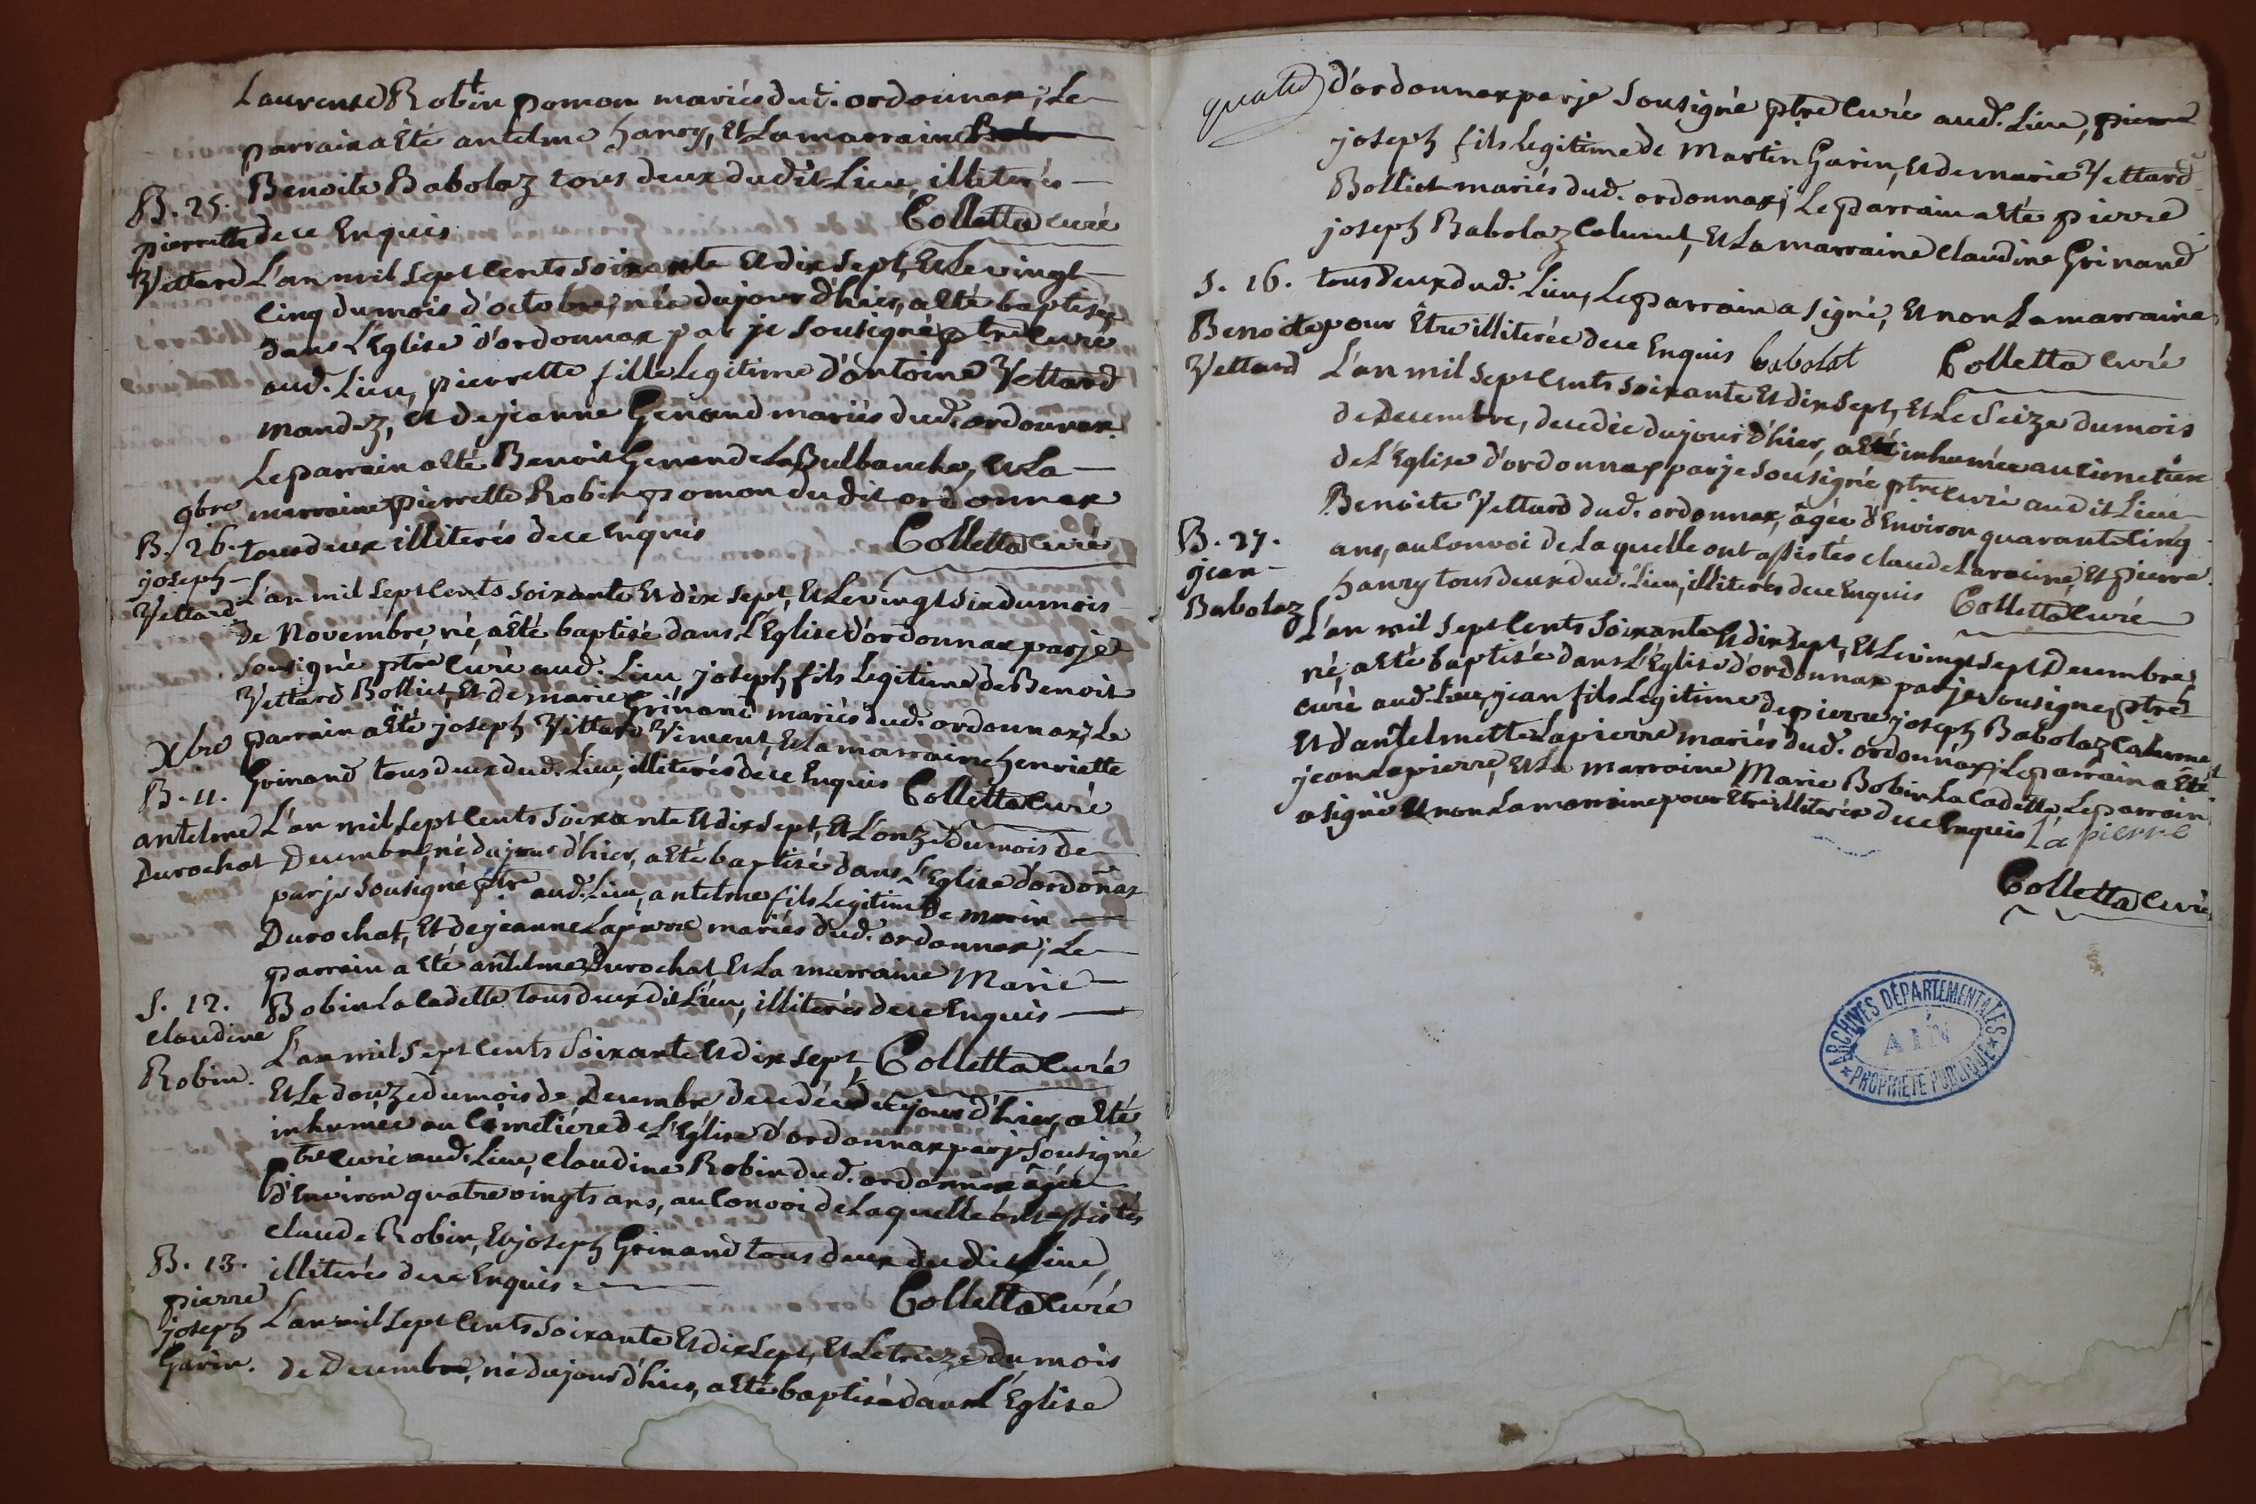 Laurence Robin pomon mariés dud. ordonnax; Le
parrain a Eté antelme hanry, Et La marraine
Benoite Babolaz tous deux dudit Lieu, illiterés
de ce Enquis Colletta curé
B. 25.
pierrette
Vettard
L'an mil Sept Cents Soixante Et dix Sept, Et Le vingt
cinq du mois d'octobre, née du jour d'hier, a Eté baptisée
dans L'Eglise d'ordonnax par je Sousigné ptre Curé
aud. Lieu, pierrette fille Legitime d'antoine Vettard
mandez, Et de jeanne Genand mariés dud. ordonnax.
Le parrain a Eté Benoit Genand La Bulbanche, Et La
marraine pierrette Robin pomon dudit ordonnax
tous deux illiterés de ce Enquis Colletta Curé
9bre
B. 26.
joseph
Vettard
L'an mil Sept Cents Soixante Et dix Sept, Et Le vingt Six du mois
de Novembre, né, a Eté baptisé dans L'Eglise d'ordonnax par je
Sousigné ptre Curé aud. Lieu joseph fils Legitime de Benoit
Vettard Bolliet, Et de marie Grinand mariés dud. ordonnax; Le
parrain a Eté joseph Vettard Viment, Et La marraine henriette
Grinand tous deux dud. Lieu, illiterés de ce Enquis Colletta Curé
Xbre
B. 11.
antelme
Durochat
L'an mil Sept Cents Soixante Et dix Sept, Et L'onze du mois de
Decembre, né du jour d'hier, a Eté baptisé dans L'Eglise d'ordonax
par je Sousigné ptre aud. Lieu, antelme fils Legitime de marin
Durochat, Et de jeanne Lapierre mariés dud. ordonnax; Le
parrain a Eté antelme Durochat Et La marraine Marie
Bobin La Cadette tous deux dit Lieu, illiterés de ce Enquis
Colletta Curé
S. 12.
Claudine
Robin.
L'an mil Sept Cents Soixante Et dix Sept,
Et Le douze du mois de Decembre decedée du jour d'hier, a Eté
inhumée au Cimetiére de L'Eglise d'ordonnax par je Sousigné
ptre Curé aud. Lieu, Claudine Robin dud. ordonnax âgée
d'Environ quatre vingts ans, au Convoi de Laquelle ont assistés
Claude Robin, Et joseph Grinand tous deux dudit Lieu,
illiterés de ce Enquis Colletta Curé
B. 13.
pierre
joseph
Garin.
L'an mil Sept Cents Soixante Et dix Sept, Et Le treize du mois
de Decembre, né du jour d'hier, a Eté baptisé dans L'Eglise
quatre
d'ordonnax par je Sousigné ptre Curé aud. Lieu, pierre
joseph fils Legitime de Martin Garin, Et de marie Vettard
Bolliet mariés dud. ordonnax; Le parrain a Eté pierre
joseph Babolaz Calumet, Et La marraine Claudine Grinand
tous deux dud. Lieu, Le parrain a Signé, Et non La marraine
pour Etre illiterée de ce Enquis babolat Colletta Curé
S. 16.
Benoite
Vettard
L'an mil Sept Cents Soixante Et dix Sept, Et Le Seize du mois
de Decembre, decedée du jour d'hier, a Eté inhumée au Cimetiere
de L'Eglise d'ordonnax par je Sousigné ptre Curé audit Lieu
Benoite Vettard dud. ordonnax, âgée d'Environ quarante Cinq
ans, au Convoi de Laquelle ont assistés Claude Laracine Et pierre
hanry tous deux dud. Lieu, illiterés de ce Enquis Colletta Curé
B. 27.
jean
Babolaz
L'an mil Sept Cents Soixante Et dix Sept, Et Le vingt Sept Decembre
né, a Eté baptisé dans L'Eglise d'ordonnax par je Sousigné ptre
Curé aud. Lieu, jean fils Legitime de pierre joseph Babolaz Calumet
Et d'antelmette Lapierre mariés dud. ordonnax; Le parrain a Eté
jean Lapierre, Et La marraine Marie Bobin La Cadette, Le parrain
a Signé Et non La marraine pour Etre illiterée de ce Enquis La pierre
Colletta Curé
ARCHIVES DÉPARTEMENTALES
AIN
PROPRIÉTÉ PUBLIQUE